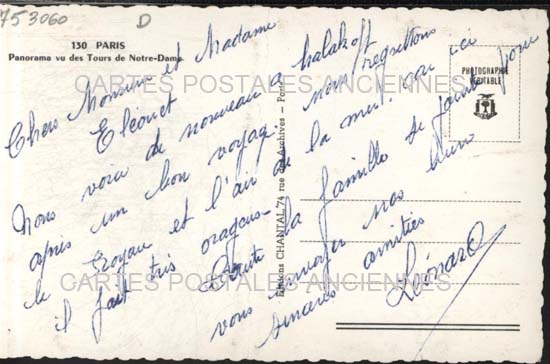 753060 D
130 PARIS
Panorama vu des Tours de Notre-Dame
CARTES POSTALES ANCIENNES
PHOTOGRAPHIE
VÉRITABLE
Editions CHANTAL, 74 rue des Archives - Paris
Chers Monsieur et Madame
Nous voici de nouveau a Malakoff
après un bon voyage. nous regrettons
le et l'air de la mer. car ici
il fait très orageux
Toute la famille se joint pour
vous envoyer nos bons
sincères amitiés
Léonard
CARTES POSTALES ANCIENNES